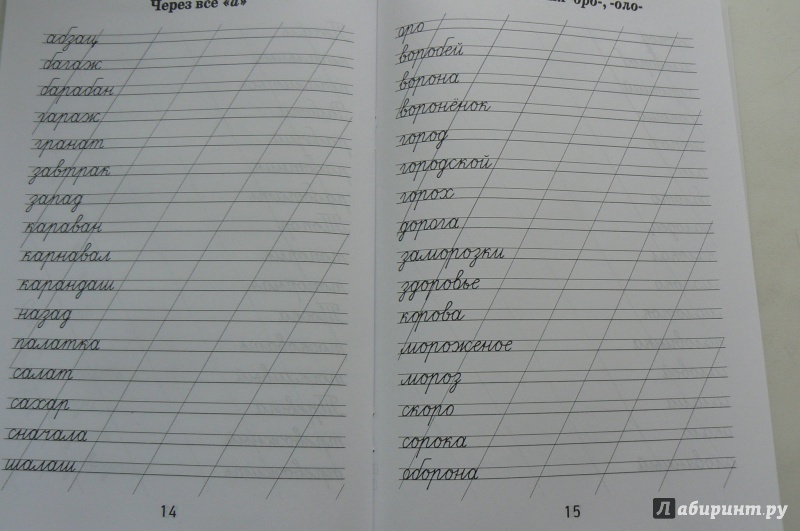 Через все «а»
абзац
багаж
барабан
гараж
гранат
завтрак
заряд
караван
карнавал
карандаш
назад
палатка
салат
сахар
сначала
шалаш
14
-оро-, -оло-
оро
воробей
ворона
воронёнок
город
городской
горох
дорога
заморозки
здоровье
корова
мороженое
мороз
скоро
сорока
оборона
15
Лабиринт.ру